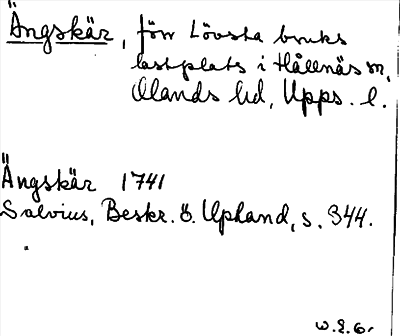 Ängskär, förr Lövsta bruks
lastplats i Hållnäs sn,
Olands hd, Upps. l.
Ängskär 1741
Salvius, Beskr. ö. Upland, s. 344.
W.E.G.